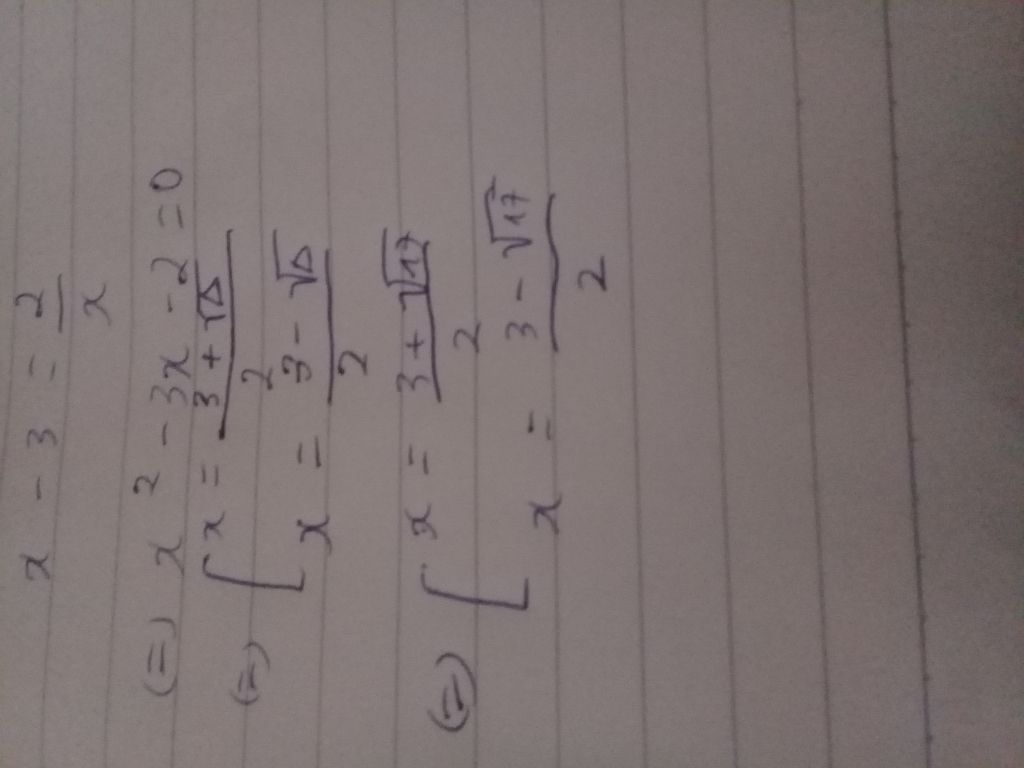 x - 3 = 2/x
(=) x² - 3x - 2 = 0
(=) [ x = (3 + √Δ)/2
x = (3 - √Δ)/2
(=) [ x = (3 + √17)/2
x = (3 - √17)/2